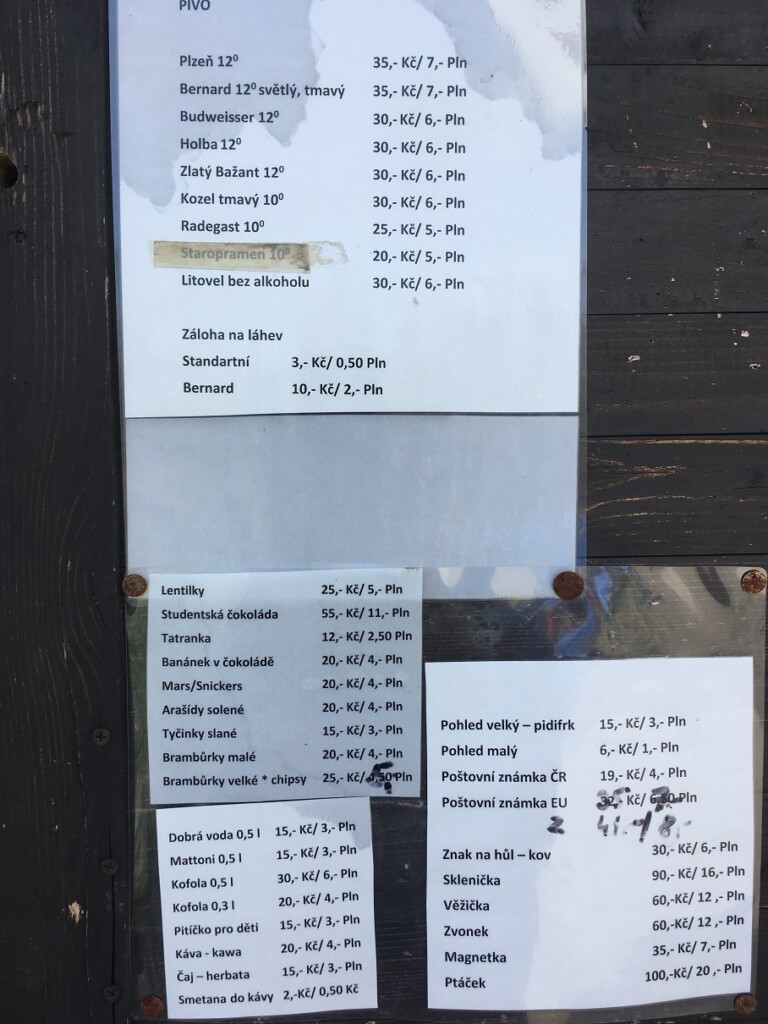 PIVO
Plzeň 12⁰ 35,- Kč/ 7,- Pln
Bernard 12⁰ světlý, tmavý 35,- Kč/ 7,- Pln
Budweisser 12⁰ 30,- Kč/ 6,- Pln
Holba 12⁰ 30,- Kč/ 6,- Pln
Zlatý Bažant 12⁰ 30,- Kč/ 6,- Pln
Kozel tmavý 10⁰ 30,- Kč/ 6,- Pln
Radegast 10⁰ 25,- Kč/ 5,- Pln
Staropramen 10⁰ 20,- Kč/ 5,- Pln
Litovel bez alkoholu 30,- Kč/ 6,- Pln
Záloha na láhev
Standartní 3,- Kč/ 0,50 Pln
Bernard 10,- Kč/ 2,- Pln
Lentilky 25,- Kč/ 5,- Pln
Studentská čokoláda 55,- Kč/ 11,- Pln
Tatranka 12,- Kč/ 2,50 Pln
Banánek v čokoládě 20,- Kč/ 4,- Pln
Mars/Snickers 20,- Kč/ 4,- Pln
Arašídy solené 20,- Kč/ 4,- Pln
Tyčinky slané 15,- Kč/ 3,- Pln
Brambůrky malé 20,- Kč/ 4,- Pln
Brambůrky velké * chipsy 25,- Kč/ 5,- Pln
Dobrá voda 0,5 l 15,- Kč/ 3,- Pln
Mattoni 0,5 l 15,- Kč/ 3,- Pln
Kofola 0,5 l 30,- Kč/ 6,- Pln
Kofola 0,3 l 20,- Kč/ 4,- Pln
Pitíčko pro děti 15,- Kč/ 3,- Pln
Káva - kawa 20,- Kč/ 4,- Pln
Čaj – herbata 15,- Kč/ 3,- Pln
Smetana do kávy 2,-Kč/ 0,50 Kč
Pohled velký – pidifrk 15,- Kč/ 3,- Pln
Pohled malý 6,- Kč/ 1,- Pln
Poštovní známka ČR 19,- Kč/ 4,- Pln
Poštovní známka EU 32,- Kč/ 6,50 Pln
Z 41.-/ 8,-
Znak na hůl – kov 30,- Kč/ 6,- Pln
Sklenička 90,- Kč/ 16,- Pln
Věžička 60,-Kč/ 12 ,- Pln
Zvonek 60,-Kč/ 12 ,- Pln
Magnetka 35,- Kč/ 7,- Pln
Ptáček 100,-Kč/ 20 ,- Pln